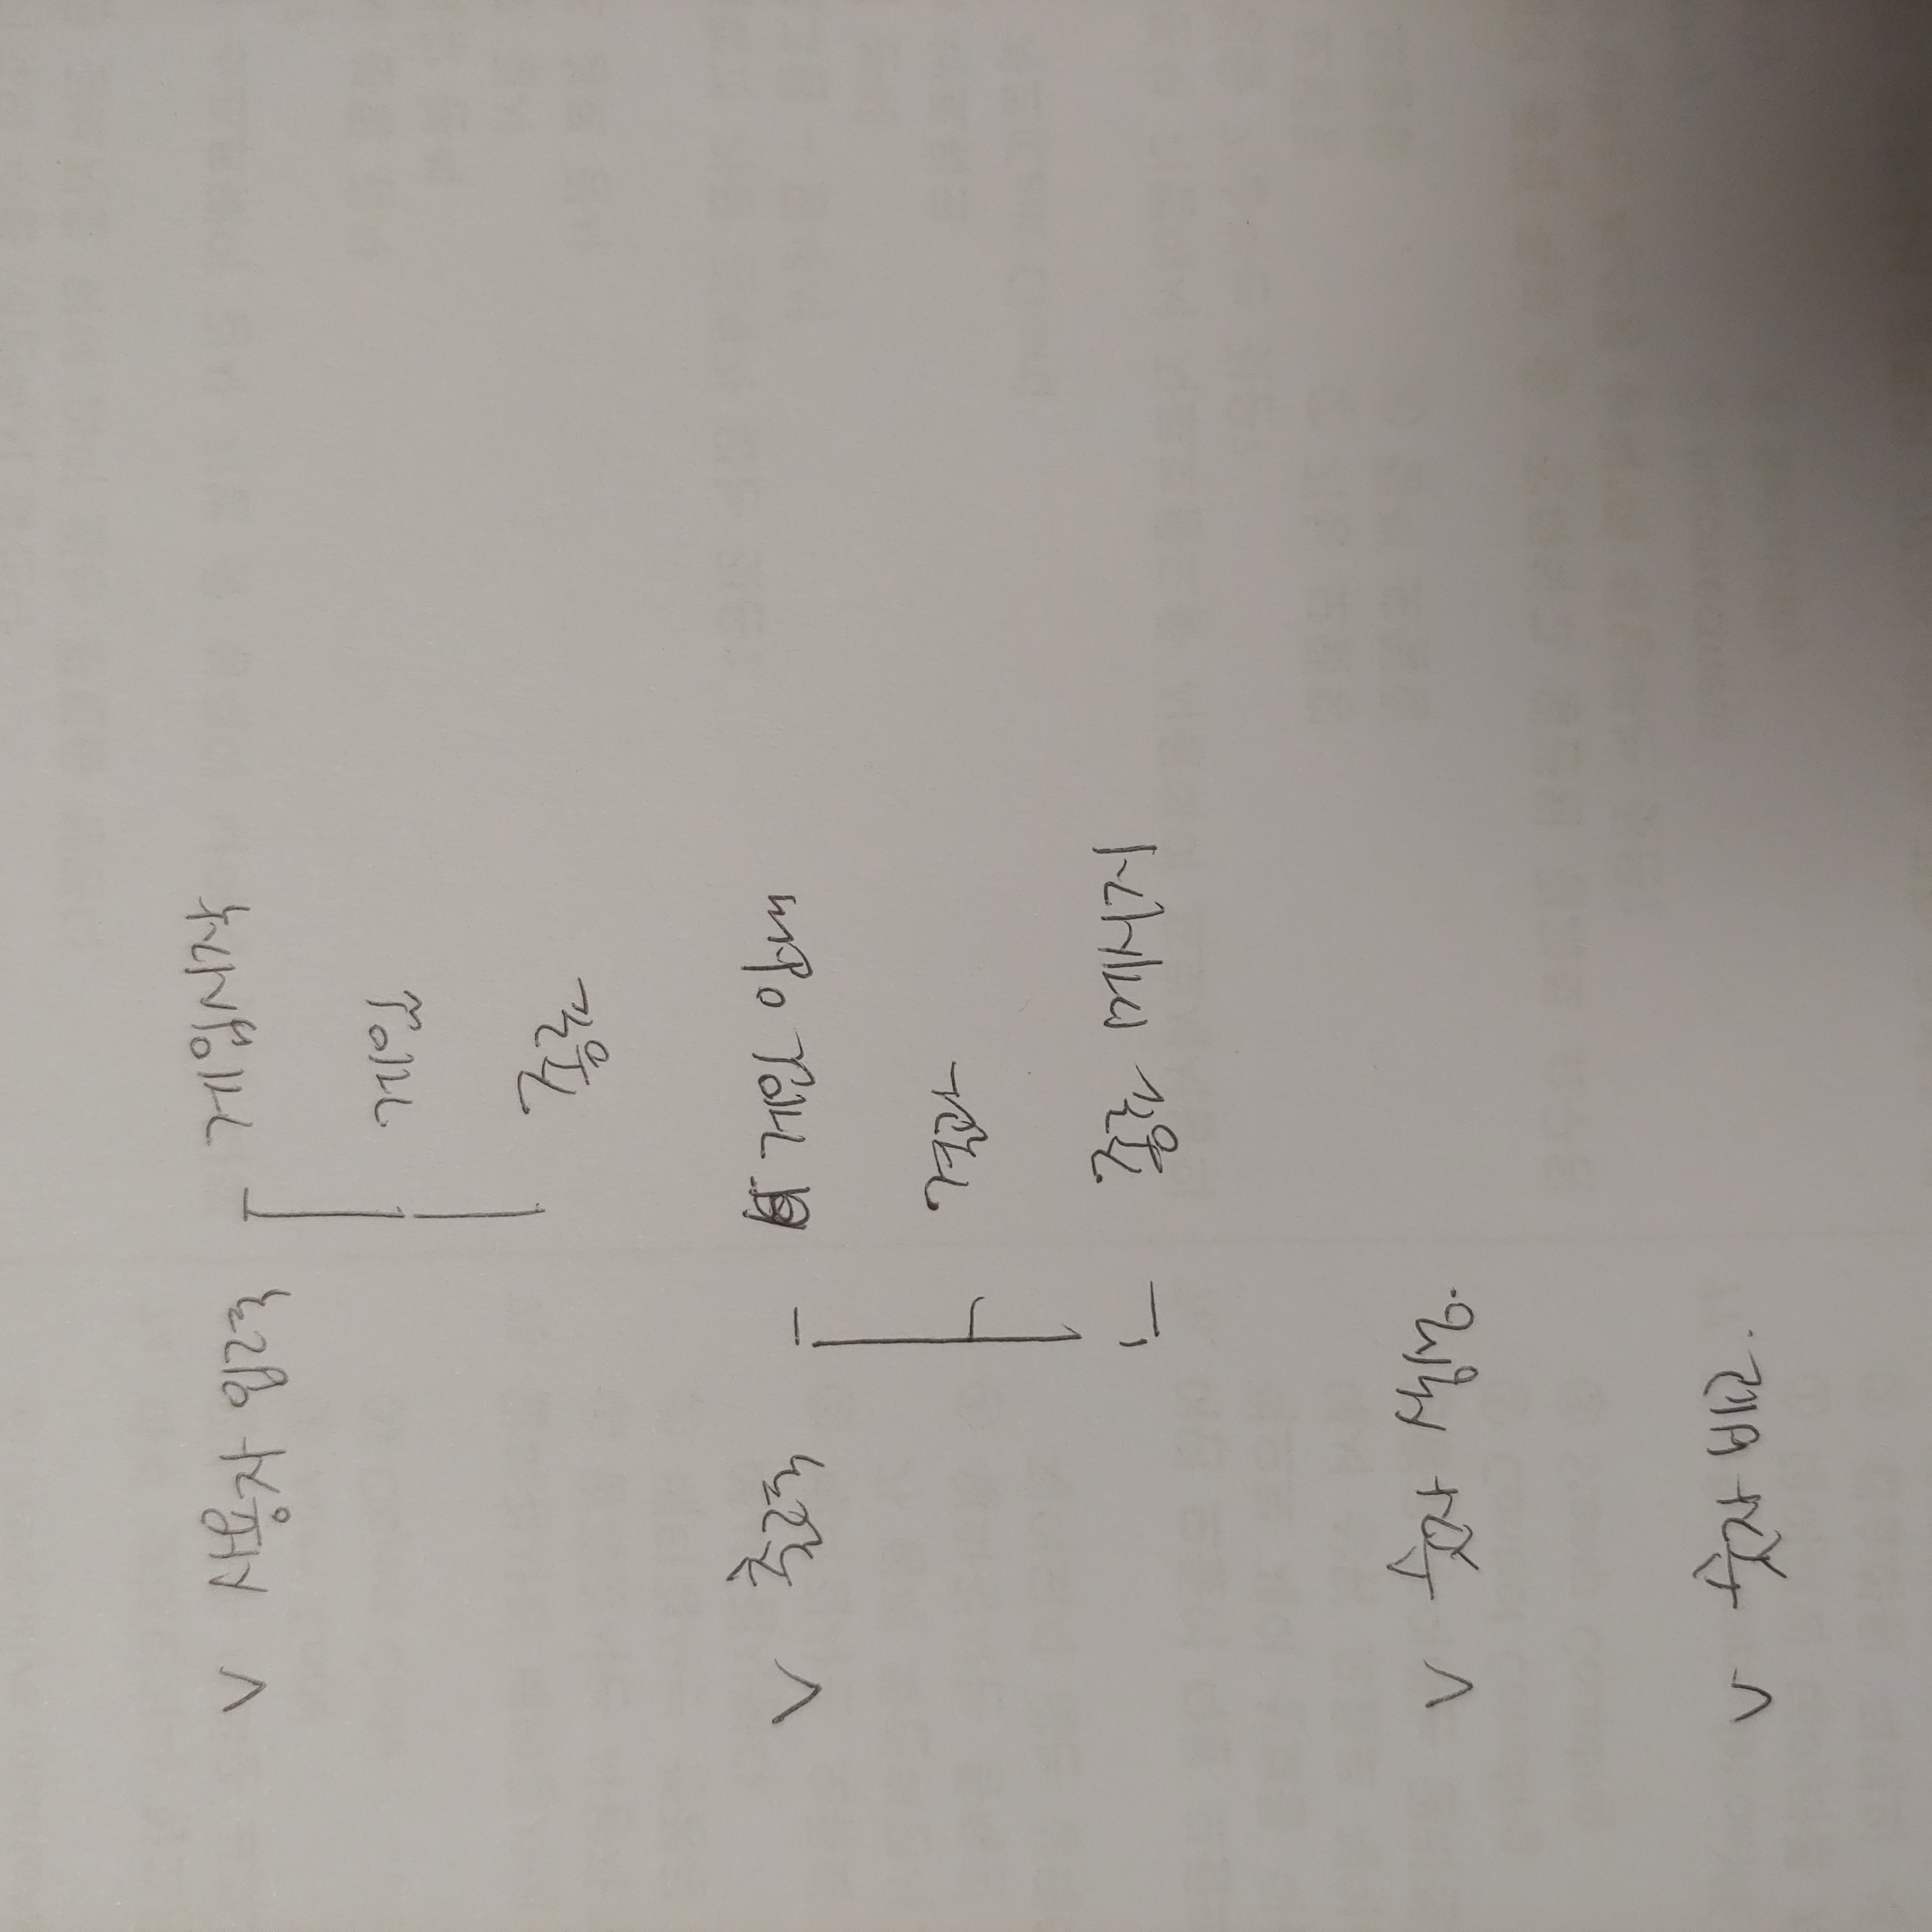 V 사용자 입력 게임시작
게임
종료
V 출력 게임 안내
결과
종료 메시지
V 숫자 생성.
V 숫자 비교.